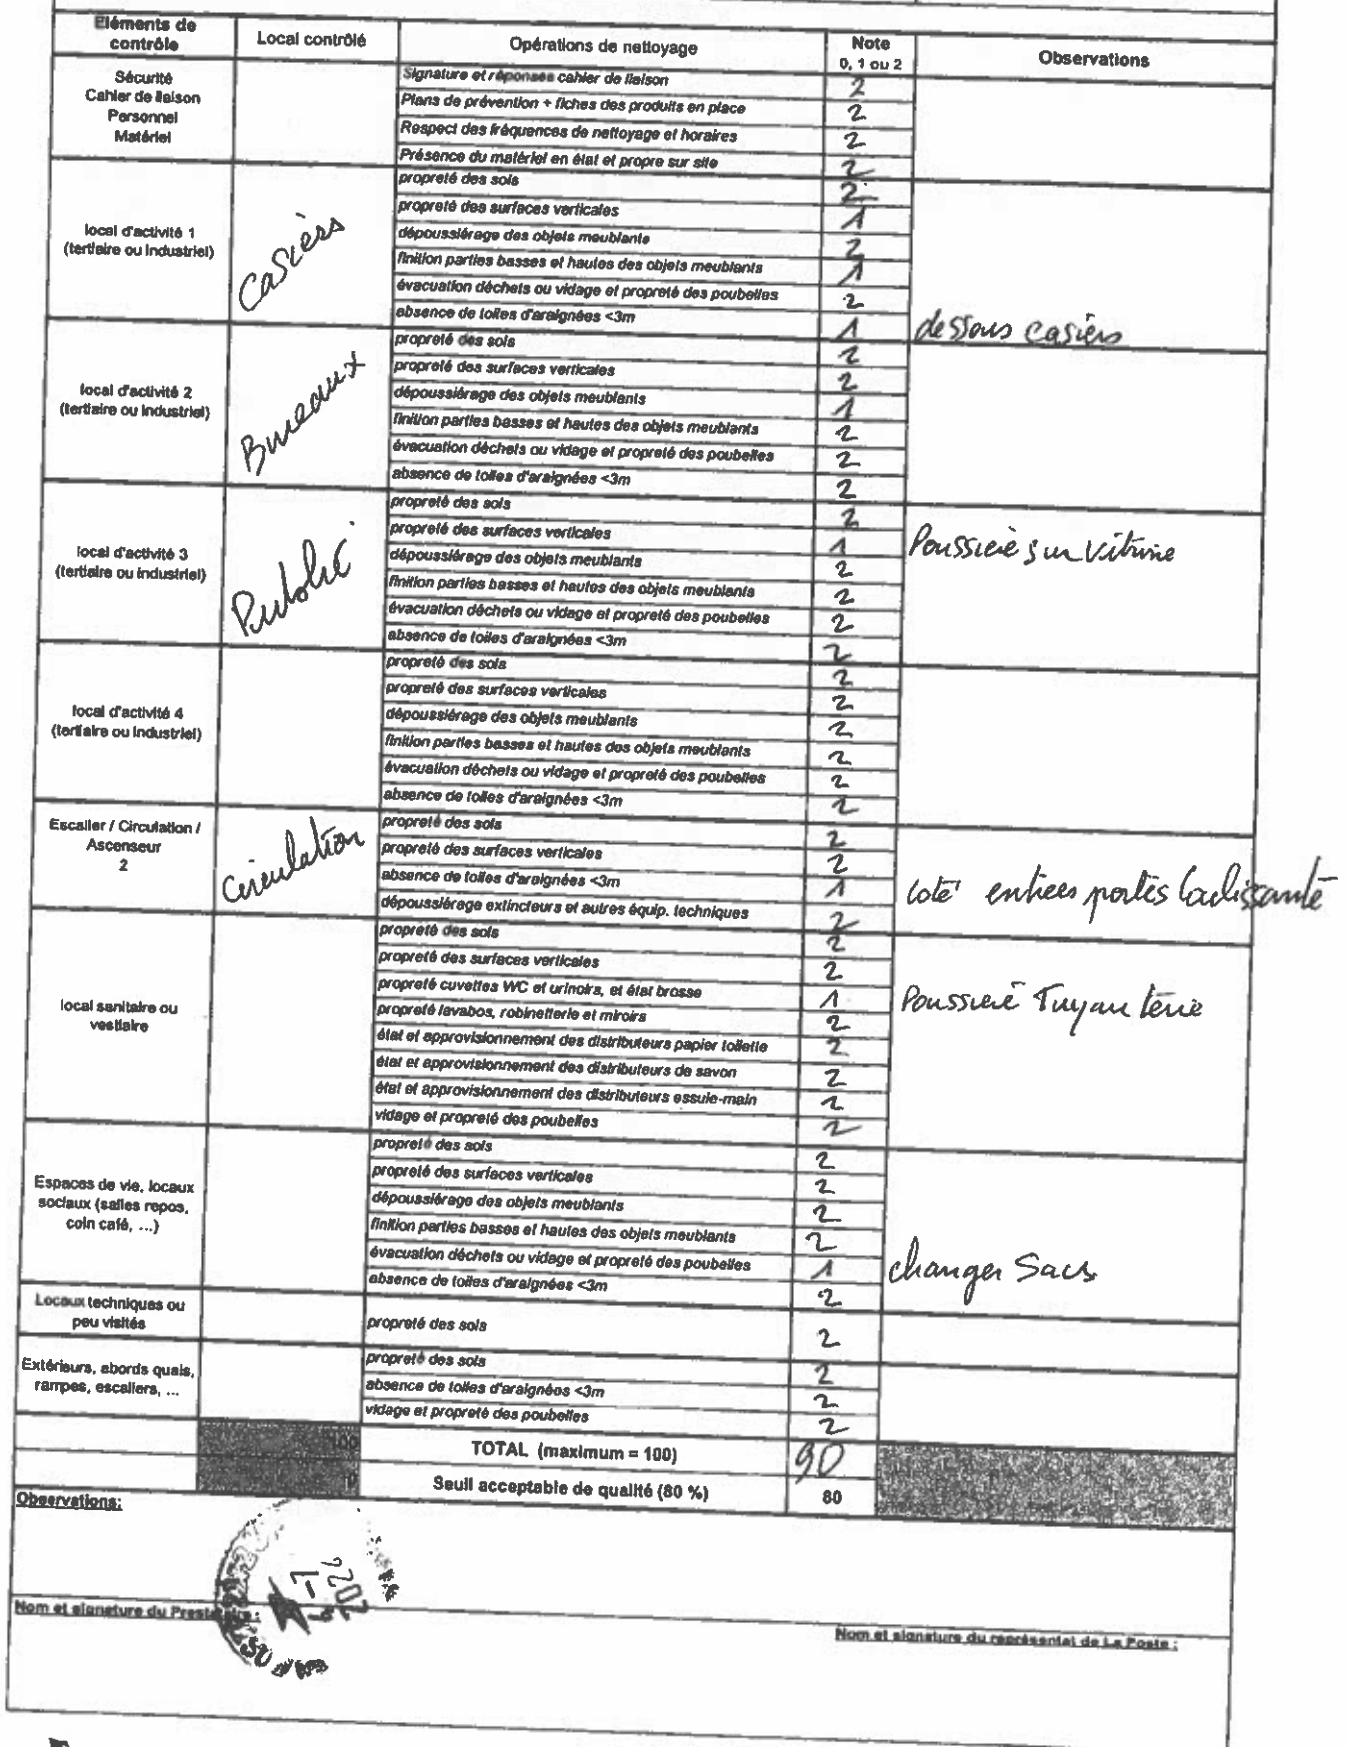 Eléments de contrôle | Local contrôlé | Opérations de nettoyage | Note 0, 1 ou 2 | Observations
Sécurité
Cahier de liaison
Personnel
Matériel
Signature et réponses cahier de liaison 2
Plans de prévention + fiches des produits en place 2
Respect des fréquences de nettoyage et horaires 2
Présence du matériel en état et propre sur site 2
local d'activité 1
(tertiaire ou industriel)
Casiers
propreté des sols 2
propreté des surfaces verticales 1
dépoussiérage des objets meublants 2
finition parties basses et hautes des objets meublants 1
évacuation déchets ou vidage et propreté des poubelles 2
absence de toiles d'araignées <3m 1
dessous casiers
local d'activité 2
(tertiaire ou industriel)
Bureaux
propreté des sols 2
propreté des surfaces verticales 2
dépoussiérage des objets meublants 1
finition parties basses et hautes des objets meublants 2
évacuation déchets ou vidage et propreté des poubelles 2
absence de toiles d'araignées <3m 2
local d'activité 3
(tertiaire ou industriel)
Public
propreté des sols 2
propreté des surfaces verticales 1
Poussière sur vitrine
dépoussiérage des objets meublants 2
finition parties basses et hautes des objets meublants 2
évacuation déchets ou vidage et propreté des poubelles 2
absence de toiles d'araignées <3m 2
local d'activité 4
(tertiaire ou industriel)
propreté des sols 2
propreté des surfaces verticales 2
dépoussiérage des objets meublants 2
finition parties basses et hautes des objets meublants 2
évacuation déchets ou vidage et propreté des poubelles 2
absence de toiles d'araignées <3m 2
Escalier / Circulation /
Ascenseur
2
Circulation
propreté des sols 2
propreté des surfaces verticales 2
absence de toiles d'araignées <3m 1
coté entrées portes
dépoussiérage extincteurs et autres équip. techniques 2
local sanitaire ou
vestiaire
propreté des sols 2
propreté des surfaces verticales 2
propreté cuvettes WC et urinoirs, et état brosse 1
Poussière Tuyauterie
propreté lavabos, robinetterie et miroirs 2
état et approvisionnement des distributeurs papier toilette 2
état et approvisionnement des distributeurs de savon 2
état et approvisionnement des distributeurs essuie-main 2
vidage et propreté des poubelles 2
Espaces de vie, locaux
sociaux (salles repos,
coin café, ...)
propreté des sols 2
propreté des surfaces verticales 2
dépoussiérage des objets meublants 2
finition parties basses et hautes des objets meublants 2
évacuation déchets ou vidage et propreté des poubelles 1
changer Sacs
absence de toiles d'araignées <3m 2
Locaux techniques ou
peu visités
propreté des sols 2
Extérieurs, abords quais,
rampes, escaliers, ...
propreté des sols 2
absence de toiles d'araignées <3m 2
vidage et propreté des poubelles 2
100 TOTAL (maximum = 100) 90
0 Seuil acceptable de qualité (80 %) 80
Observations:
2022
Nom et signature du Prestataire :
Nom et signature du représentat de La Poste :